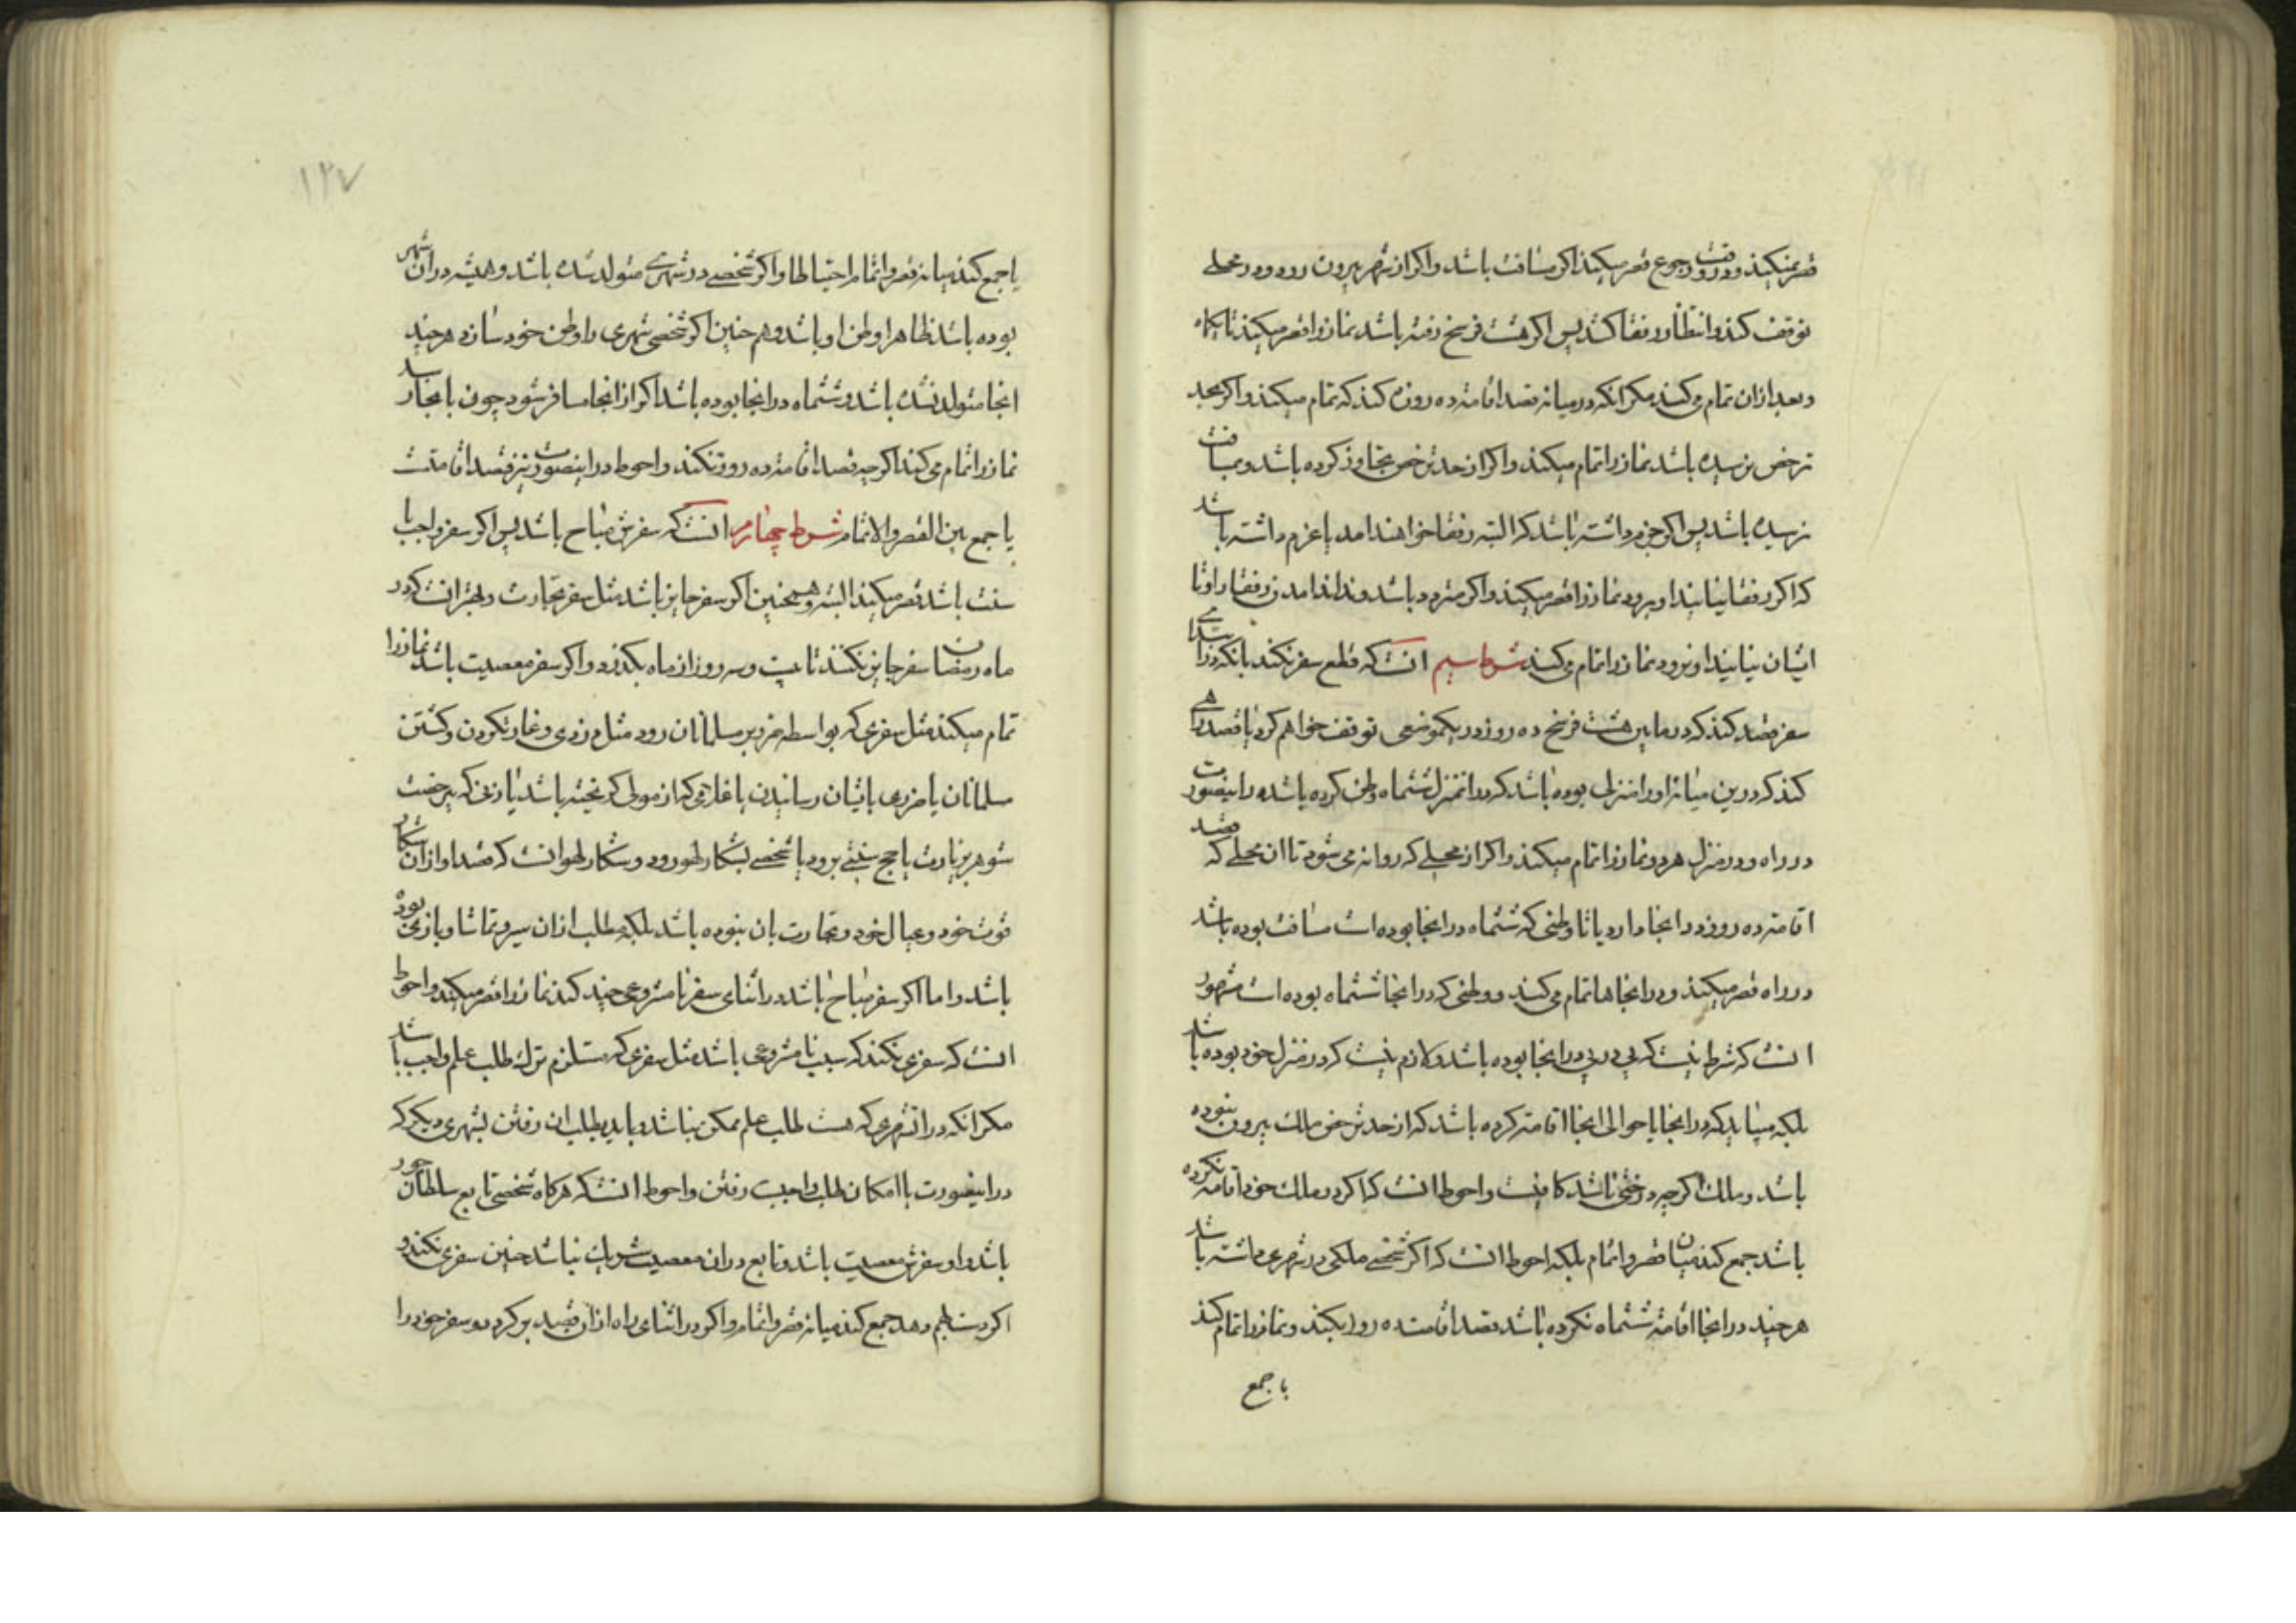 قصر نمیکند و در وقت رجوع قصر میکند اکر مسافت باشد و اکر از شهر بیرون رود و در محلی
توقف کند و انتظار رفقا کشد پس اکر هشت فرسخ رفته باشد نماز را قصر میکند تا یکماه
و بعد از ان تمام می کند مکر انکه در میانه قصد اقامت ده روزه کند که تمام میکند و اکر بحد
ترخص نرسیده باشد نماز را تمام میکند و اکر از حد ترخص تجاوز کرده باشد و بمسافت
نرسیده باشد پس اکر جزم داشته باشد که البته رفقا خواهند امد یا عزم داشته باشد
که اکر رفقا نیایند او برود نماز را قصر میکند و اکر متردد باشد و نداند امدن رفقا را و تا
ایشان نیایند او نرود نماز را تمام می کند شرط سیم انست که قطع سفر نکند بانکه در ابتدای
سفر قصد کند که در مابین هشت فرسخ ده روز در یکموضعی توقف خواهم کرد یا قصد راهی
کند که درین میانه او را منزلی بوده باشد که در انمنزل ششماه وطن کرده باشد در اینصورت
در راه و در منزل هر دو نماز را تمام میکند و اکر از محلی که روانه می شود تا ان محلی که قصد
اقامت ده روز در انجا دارد یا تا وطنی که ششماه در انجا بوده است مسافت بوده باشد
در راه قصر میکند و در انجاها تمام می کند و وطنی که در انجا ششماه بوده است مشهور
انست که شرط نیست که پی در پی در انجا بوده باشد و لازم نیست که در منزل خود بوده باشد
بلکه میباید که در انجا یا حوالی انجا اقامت کرده باشد که از حد ترخص ملک بیرون نبوده
باشد و ملک اکر چه درختی باشد کافیست و احوط انست که اکر در ملک خود اقامت نکرده
باشد جمع کند میان قصر و اتمام بلکه احوط انست که اکر شخصی ملکی در شهری داشته باشد
هر چند در انجا اقامت ششماه نکرده باشد قصد اقامت ده روز بکند و نماز را تمام کند
یا جمع
۱۲۷
یا جمع کند میانه قصر و اتمام احتیاطا و اکر شخصی در شهری متولد شده باشد و همیشه در ان شهر
بوده باشد ظاهرا وطن او باشد و هم چنین اکر شخصی شهری را وطن خود سازد هر چند
انجا متولد نشده باشد و ششماه در انجا بوده باشد اکر از انجا مسافر شود چون بانجا رسد
نماز را تمام می کند اکر چه قصد اقامت ده روز نکند و احوط در اینصورت نیز قصد اقامتست
یا جمع بین القصر و الاتمام شرط چهارم انست که سفرش مباح باشد پس اکر سفر واجب یا
سنت باشد قصر میکند البته و همچنین اکر سفر جایز باشد مثل سفر تجارت و بهتر انست که در
ماه رمضان سفر جایز نکنند تا بیست و سه روز از ماه بکذرد و اکر سفر معصیت باشد نماز را
تمام میکند مثل سفری که بواسطه ضرر بر مسلمانان رود مثل دزدی و غارت کردن و کشتن
مسلمانان یا ضرری بایشان رسانیدن یا غلامی که از مولی کریخته باشد یا زنی که بیرخصت
شوهر بزیارت یا حج سنتی برود یا شخصی بشکار لهو رود و شکار لهو انست که قصد او از ان شکار
قوت خود و عیال خود و تجارت بان نبوده باشد بلکه مطلب از ان سیر و تماشا و بازی بوده
باشد و اما اکر سفر مباح باشد و در اثنای سفر نامشروعی چند کند نماز را قصر میکند و احوط
انست که سفری نکند که سبب نامشروعی باشد مثل سفری که مستلزم ترک طلب علم واجب باشد
مکر انکه در انشهری که هست طلب علم ممکن نباشد و باید بطلب ان رفتن بشهری دیکر که
در اینصورت با امکان طلب واجبست رفتن و احوط انست که هرکاه شخصی تابع سلطان جور
باشد و او سفرش معصیت باشد و تابع در ان معصیت شریک نباشد چنین سفری نکند و
اکر دست بهم دهد جمع کند میانه قصر و اتمام و اکر در اثنای راه از ان قصد بر کردد و سفر خود را